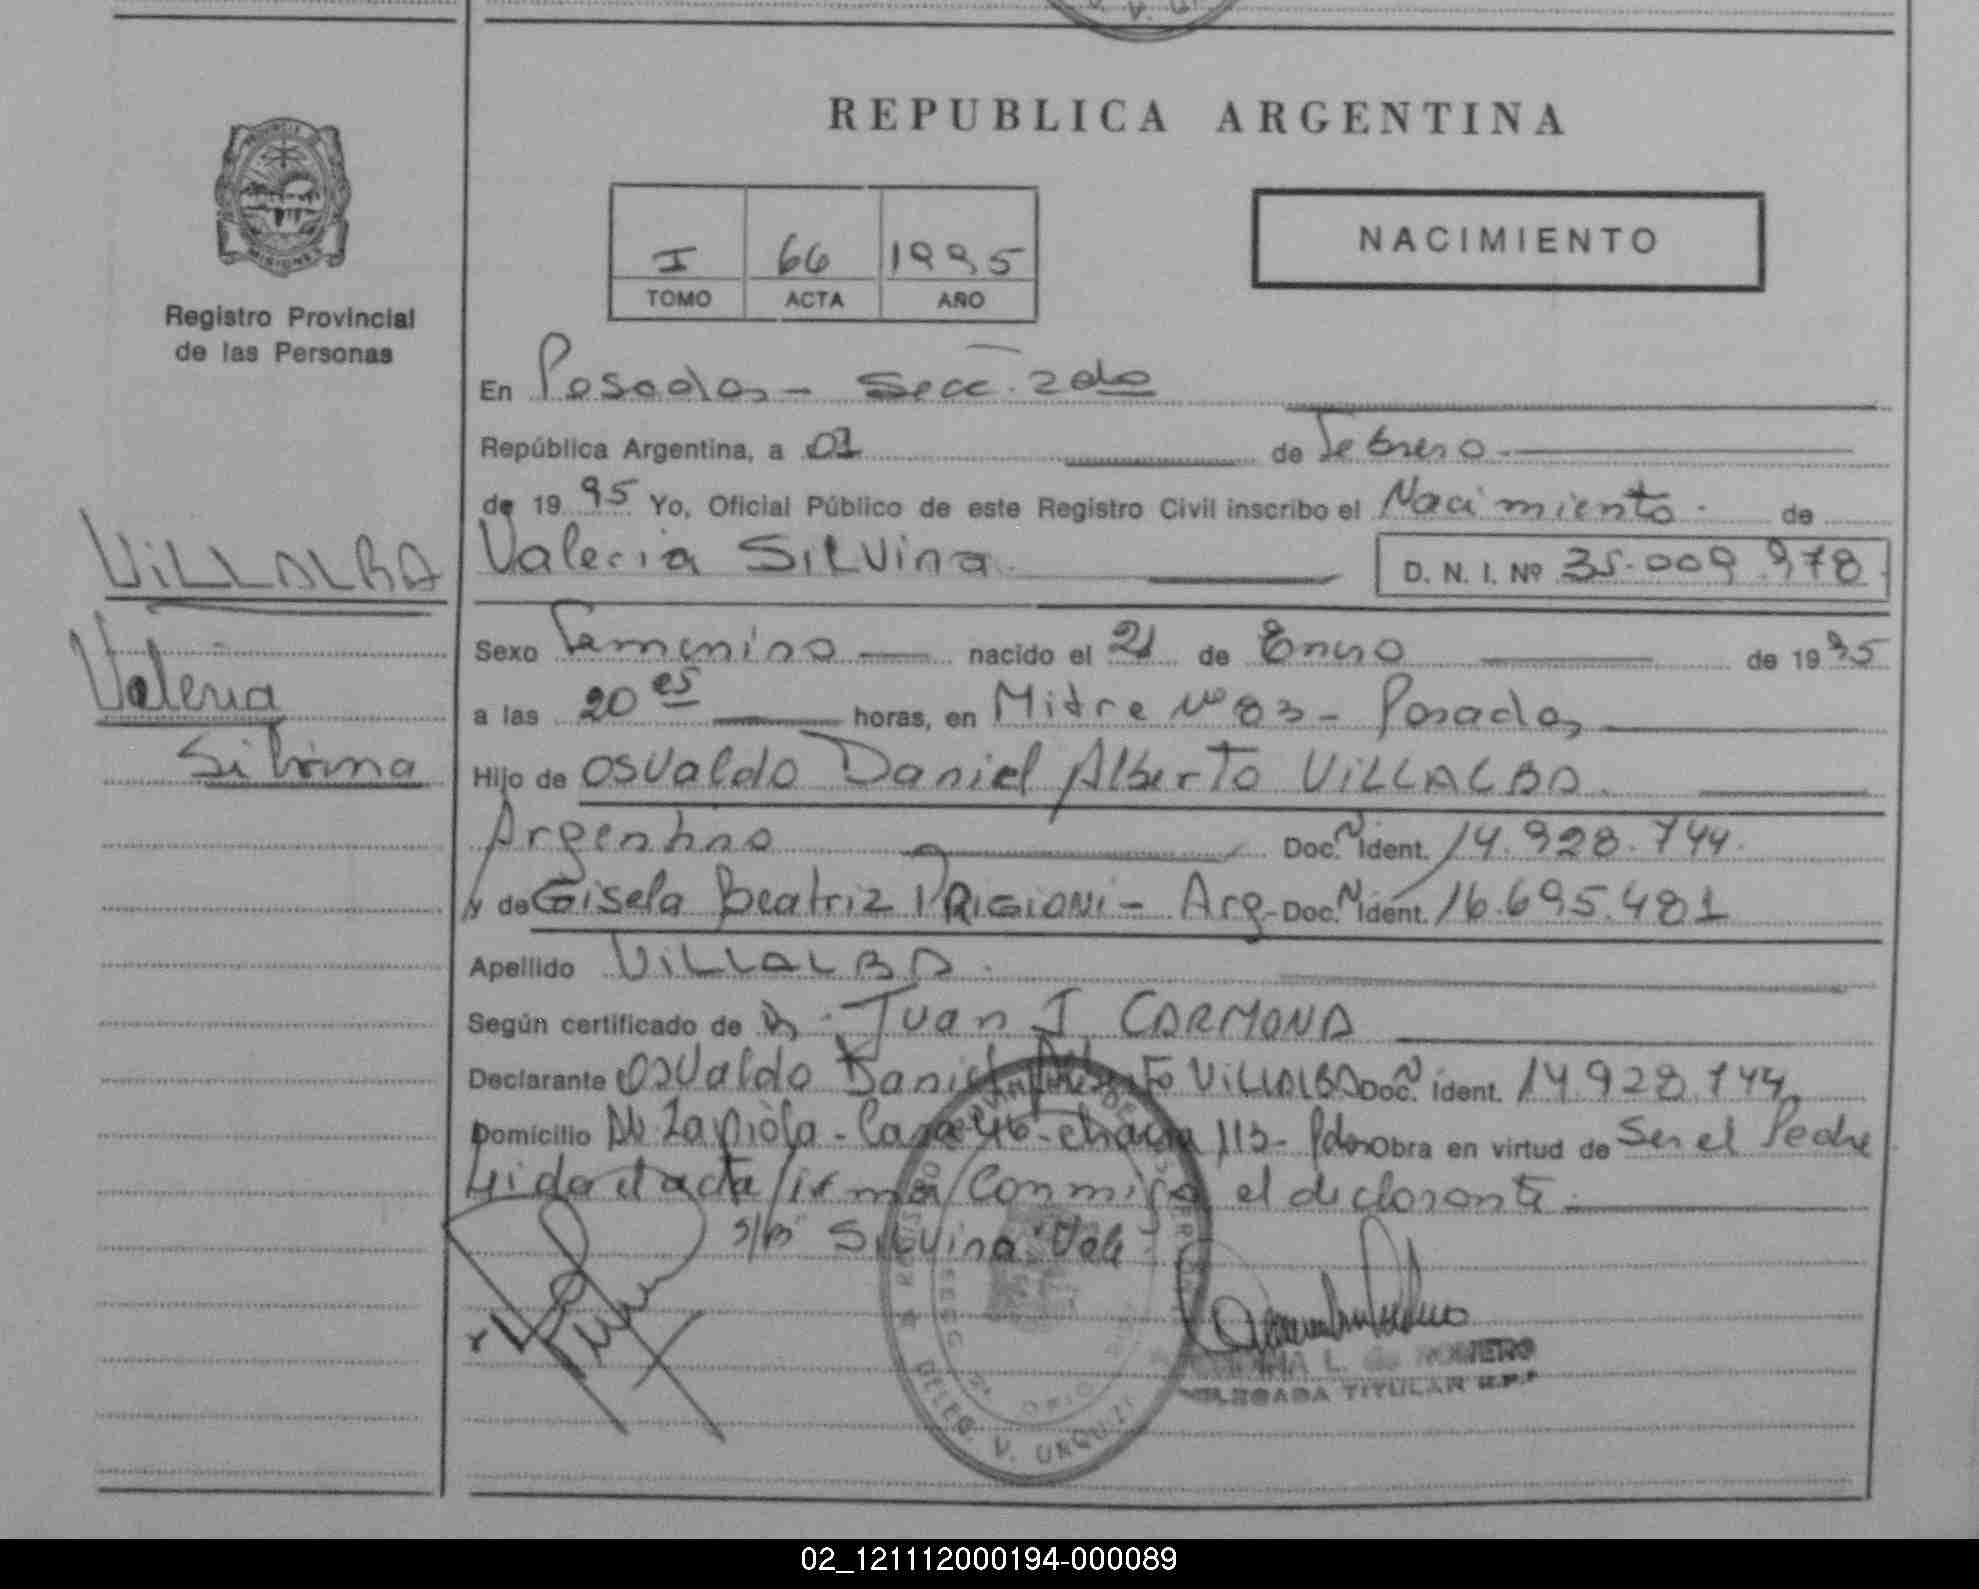 REPUBLICA ARGENTINA
PROVINCIA
MISIONES
Registro Provincial
de las Personas
I 66 1995
TOMO ACTA AÑO
NACIMIENTO
En Posadas - Secc. 2da
República Argentina, a 01 de Febrero
de 1995 Yo, Oficial Público de este Registro Civil inscribo el Nacimiento de
VILLALBA
Valeria Silvina
Valeria SILVina D. N. I. Nº 35.009.978
Sexo Femenino nacido el 21 de Enero de 1995
a las 20 es horas, en Mitre Nº 83 - Posadas
Hijo de OSValdo Daniel Alberto VILLALBA.
Argentino Doc. N Ident. 14.928.744.
y de Gisela Beatriz - Arg- Doc. N Ident. 16.695.481
Apellido VILLALBA.
Según certificado de Dr. Juan J CARMONA
Declarante OSValdo Daniel Alberto VILLALBA Doc. N Ident. 14.928.744
Domicilio Zapiola - Casa 46 - chacra 113 - Pdas Obra en virtud de Ser el Padre
Leida el acta firma Conmigo el declarante
S/B Silvina Vale
L. de ROMERO
DELEGADA TITULAR R.P.P
DELEG. V. URQUIZA
02_121112000194-000089